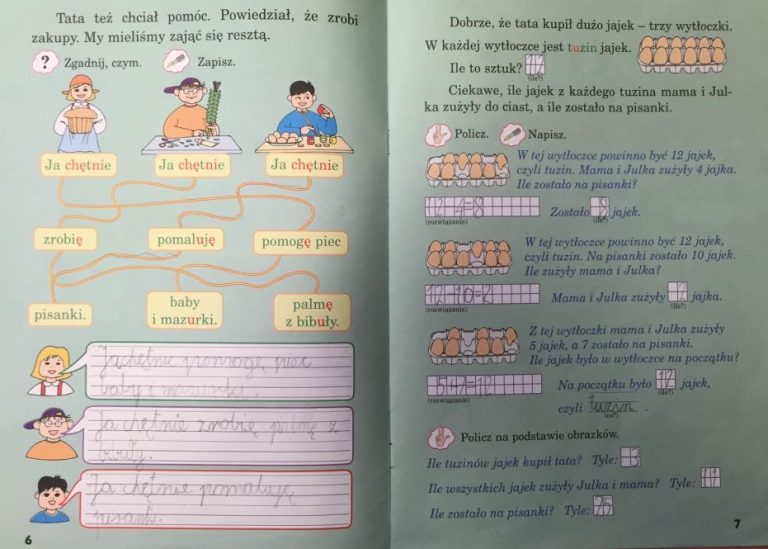 Tata też chciał pomóc. Powiedział, że zrobi
zakupy. My mieliśmy zająć się resztą.
? Zgadnij, czym. Zapisz.
Ja chętnie Ja chętnie Ja chętnie
zrobię pomaluję pomogę piec
pisanki. baby
i mazurki. palmę
z bibuły.
Ja chętnie pomogę piec
baby i mazurki.
Ja chętnie zrobię palmę z
bibuły.
Ja chętnie pomaluję
pisanki.
6
Dobrze, że tata kupił dużo jajek – trzy wytłoczki.
W każdej wytłoczce jest tuzin jajek.
Ile to sztuk? 12
(ile?)
Ciekawe, ile jajek z każdego tuzina mama i Jul-
ka zużyły do ciast, a ile zostało na pisanki.
Policz. Napisz.
W tej wytłoczce powinno być 12 jajek,
czyli tuzin. Mama i Julka zużyły 4 jajka.
Ile zostało na pisanki?
12-4=8 Zostało 8 jajek.
(rozwiązanie) (ile?)
W tej wytłoczce powinno być 12 jajek,
czyli tuzin. Na pisanki zostało 10 jajek.
Ile zużyły mama i Julka?
12-10=2 Mama i Julka zużyły 2 jajka.
(rozwiązanie) (ile?)
Z tej wytłoczki mama i Julka zużyły
5 jajek, a 7 zostało na pisanki.
Ile jajek było w wytłoczce na początku?
5+7=12 Na początku było 12 jajek,
(rozwiązanie) (ile?)
czyli tuzin .
(co?)
Policz na podstawie obrazków.
Ile tuzinów jajek kupił tata? Tyle: 3
Ile wszystkich jajek zużyły Julka i mama? Tyle: 11
Ile zostało na pisanki? Tyle: 25
7